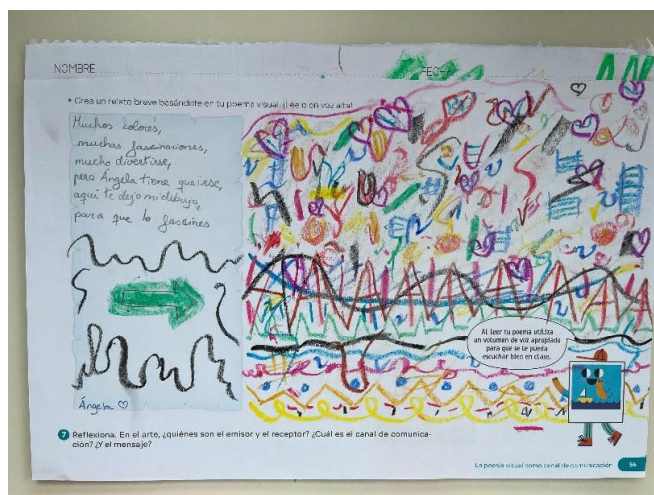 NOMBRE
FECHA
• Crea un relato breve basándote en tu poema visual. ¡Léelo en voz alta!
Muchos colores,
muchas fascinaciones,
mucho divertirse,
pero Ángela tiene que irse,
aquí te dejo mi dibujo,
para que lo fascines
Ángela ♡
Al leer tu poema utiliza
un volumen de voz apropiado
para que se te pueda
escuchar bien en clase.
7 Reflexiona. En el arte, ¿quiénes son el emisor y el receptor? ¿Cuál es el canal de comunica-
ción? ¿Y el mensaje?
La poesía visual como canal de comunicación